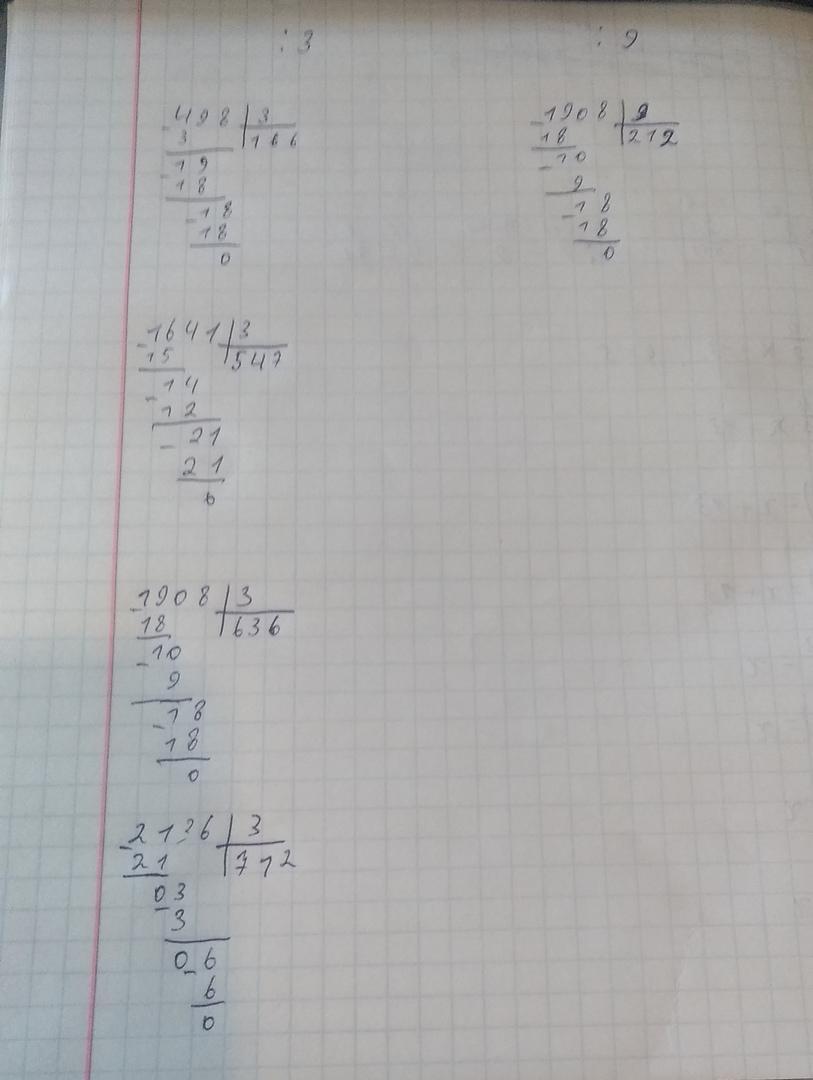 : 3
: 9
-498 | 3
3 | 166
-19
18
-18
18
0
-1908 | 9
18 | 212
-10
9
-18
18
0
-1641 | 3
15 | 547
-14
12
-21
21
0
-1908 | 3
18 | 636
-10
9
-18
18
0
-2136 | 3
21 | 712
03
-3
06
-6
0